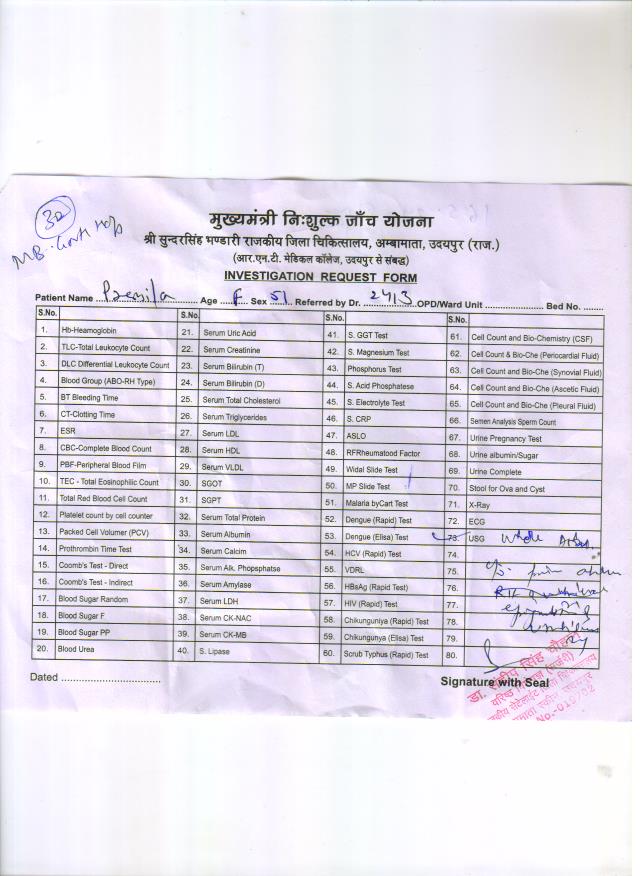 32
मुख्यमंत्री निःशुल्क जाँच योजना
श्री सुन्दरसिंह भण्डारी राजकीय जिला चिकित्सालय, अम्बामाता, उदयपुर (राज.)
(आर.एन.टी. मेडिकल कॉलेज, उदयपुर से संबद्ध)
INVESTIGATION REQUEST FORM
Patient Name ........ Age .... F .... Sex .51.. Referred by Dr. .2413. OPD/Ward Unit ................ Bed No. .......
S.No. S.No. S.No. S.No.
1. Hb-Heamoglobin 21. Serum Uric Acid 41. S. GGT Test 61. Cell Count and Bio-Chemistry (CSF)
2. TLC-Total Leukocyte Count 22. Serum Creatinine 42. S. Magnesium Test 62. Cell Count & Bio-Che (Periocardial Fluid)
3. DLC Differential Leukocyte Count 23. Serum Bilirubin (T) 43. Phosphorus Test 63. Cell Count and Bio-Che (Synovial Fluid)
4. Blood Group (ABO-RH Type) 24. Serum Bilirubin (D) 44. S. Acid Phosphatese 64. Cell Count and Bio-Che (Ascetic Fluid)
5. BT Bleeding Time 25. Serum Total Cholesterol 45. S. Electrolyte Test 65. Cell Count and Bio-Che (Pleural Fluid)
6. CT-Clotting Time 26. Serum Triglycerides 46. S. CRP 66. Semen Analysis Sperm Count
7. ESR 27. Serum LDL 47. ASLO 67. Urine Pregnancy Test
8. CBC-Complete Blood Count 28. Serum HDL 48. RFRheumatood Factor 68. Urine albumin/Sugar
9. PBF-Peripheral Blood Film 29. Serum VLDL 49. Widal Slide Test 69. Urine Complete
10. TEC - Total Eosinophilic Count 30. SGOT 50. MP Slide Test 70. Stool for Ova and Cyst
11. Total Red Blood Cell Count 31. SGPT 51. Malaria byCart Test 71. X-Ray
12. Platelet count by cell counter 32. Serum Total Protein 52. Dengue (Rapid) Test 72. ECG
13. Packed Cell Volumer (PCV) 33. Serum Albumin 53. Dengue (Elisa) Test 73. USG Whole
14. Prothrombin Time Test 34. Serum Calcim 54. HCV (Rapid) Test 74.
15. Coomb's Test - Direct 35. Serum Alk. Phopsphatse 55. VDRL 75.
16. Coomb's Test - Indirect 36. Serum Amylase 56. HBsAg (Rapid Test) 76.
17. Blood Sugar Random 37. Serum LDH 57. HIV (Rapid) Test 77.
18. Blood Sugar F 38. Serum CK-NAC 58. Chikunguniya (Rapid) Test 78.
19. Blood Sugar PP 39. Serum CK-MB 59. Chikungunya (Elisa) Test 79.
20. Blood Urea 40. S. Lipase 60. Scrub Typhus (Rapid) Test 80.
Dated ................................
Signature with Seal
डा. संदीप सिंह